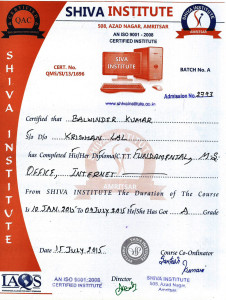 SHIVA INSTITUTE
QAC
508, AZAD NAGAR, AMRITSAR
AN ISO 9001 - 2008
CERTIFIED INSTITUTE
CERT. NO.
QMS/SI/13/1696
BATCH No. A
www.shivainstitute.co.in
Admission No. 2793
SHIVA INSTITUTE
Certified that BALWINDER KUMAR
S/o D/o KRISHAN LAL
has Completed His/Her Diploma I.T. FUNDAMENTAL, M.S
OFFICE, INTERNET
AMRITSAR
From SHIVA INSTITUTE The Duration of The Course
Is 10 JAN. 2015 To 09 JULY 2015 He/She Has Got A Grade
Date 15 JULY 2015
Course Co-Ordinator
IAQS
AN ISO 9001:2008
CERTIFIED INSTITUTE
Director
SHIVA INSTITUTE
508, Azad Nagar,
Amritsar